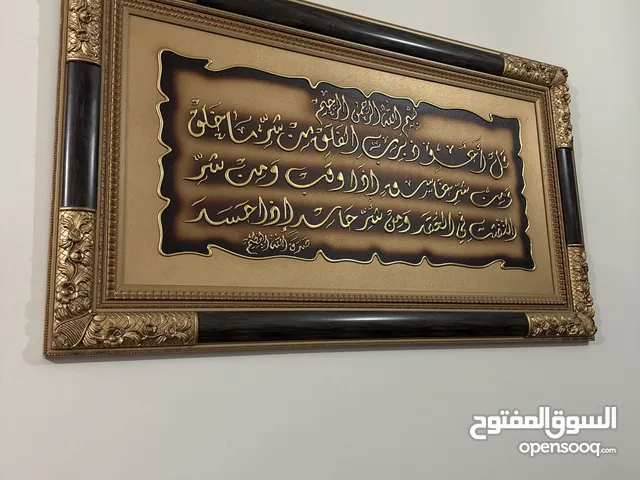 بسم الله الرحمن الرحيم
قل أعوذ برب الفلق من شر ما خلق
ومن شر غاسق إذا وقب ومن شر
النفثت في العقد ومن شر حاسد إذا حسد
صدق الله العظيم
السوق المفتوح
opensooq.com